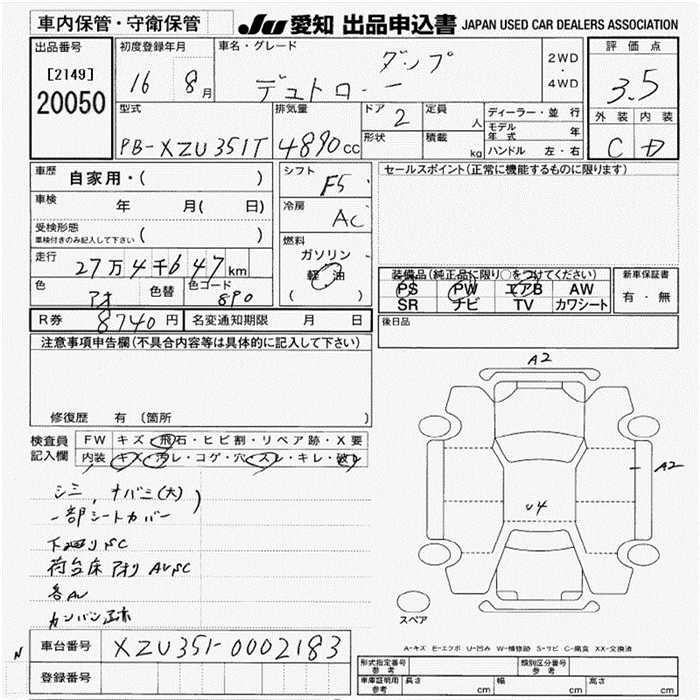 車内保管・守衛保管
JU 愛知 出品申込書 JAPAN USED CAR DEALERS ASSOCIATION
出品番号
[2149]
20050
初度登録年月
16 8月
車名・グレード
ダンプ
デュトロ・ー
2WD
・
4WD
評価点
3.5
外装 内装
C D
型式
PB-XZU351T
排気量
4890cc
ドア
2
形状
定員
人
積載
kg
ディーラー・並行
モデル年式 年
ハンドル 左・右
車歴
自家用・( )
車検
年 月( 日)
受検形態
車検付きのみ記入して下さい ( )
走行
27万4千647km
色
アオ
色替
色コード
890
シフト
F5
冷房
AC
燃料
ガソリン
軽油
( )
R券
8740円
名変通知期限 月 日
セールスポイント(正常に機能するものに限ります)
装備品(純正品に限り○をつけてください)
PS PW エアB AW
SR ナビ TV カワシート
新車保証書
有・無
後日品
注意事項申告欄(不具合内容等は具体的に記入して下さい)
修復歴 有 (箇所 )
検査員
記入欄
FW キズ・飛石・ヒビ割・リペア跡・X要
内装 キズ・汚レ・コゲ・穴・スレ・キレ・破レ
シミ, ナバミ(大)
一部シートカバー
下廻りPSC
荷台床アオリ AUPSC
各AU
カンバン正木
A2
A2
U4
スペア
A-キズ E-エクボ U-凹み W-補修跡 S-サビ C-腐食 XX-交換済
N
車台番号
XZU351-0002183
登録番号
形式指定番号
参考
類別区分番号
参考
車庫証明用
参考
長さ cm 幅 cm 高さ cm